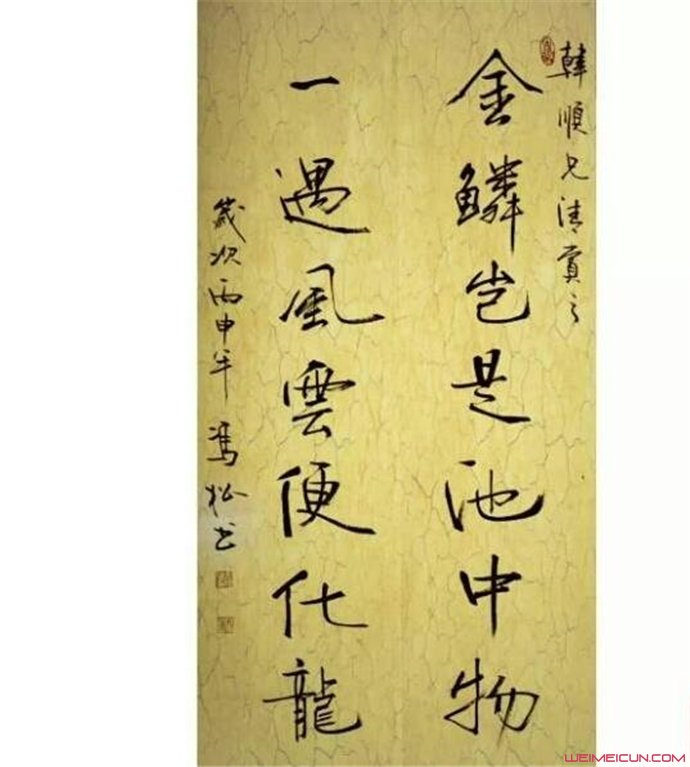 韓順兄清賞之
金鱗岂是池中物
一遇風雲便化龍
歲次丙申年 馮松书
WEIMEICUN.COM